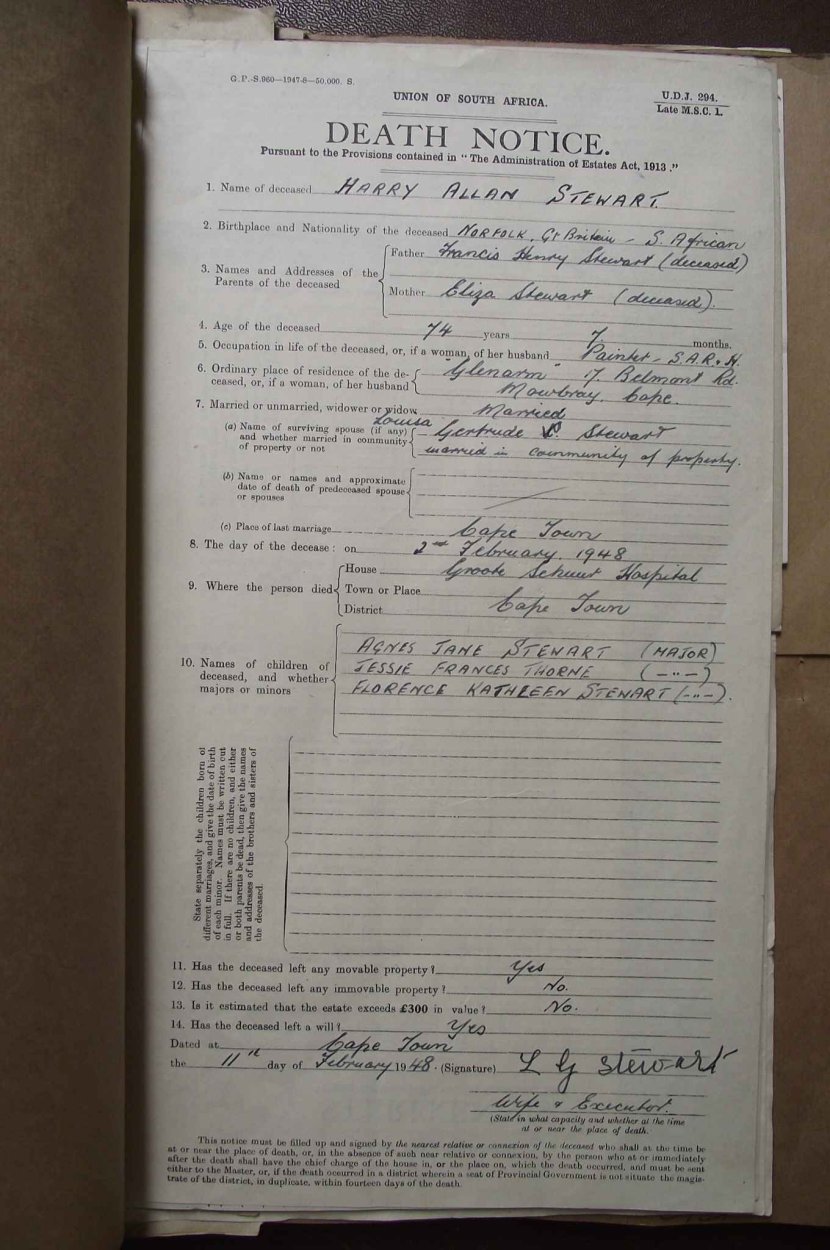 G.P.-S.960—1947-8—50,000. S.
UNION OF SOUTH AFRICA.
U.D.J. 294.
Late M.S.C. 1.
DEATH NOTICE.
Pursuant to the Provisions contained in "The Administration of Estates Act, 1913."
1. Name of deceased HARRY ALLAN STEWART.
2. Birthplace and Nationality of the deceased NORFOLK, Gt Britain – S. African
3. Names and Addresses of the Parents of the deceased
Father Francis Henry Stewart (deceased)
Mother Eliza Stewart (deceased).
4. Age of the deceased 74 years 7 months.
5. Occupation in life of the deceased, or, if a woman, of her husband Painter – S.A.R. & H.
6. Ordinary place of residence of the de-
ceased, or, if a woman, of her husband
"Glenarm" 17, Belmont Rd.
Mowbray, Cape.
7. Married or unmarried, widower or widow Married
(a) Name of surviving spouse (if any)
and whether married in community
of property or not
Louisa
Gertrude Stewart
married in community of property.
(b) Name or names and approximate
date of death of predeceased spouse
or spouses
(c) Place of last marriage Cape Town
8. The day of the decease: on 2nd February, 1948
9. Where the person died
House Groote Schuur Hospital
Town or Place
District Cape Town
10. Names of children of
deceased, and whether
majors or minors
AGNES JANE STEWART (MAJOR)
JESSIE FRANCES THORNE (–"–)
FLORENCE KATHLEEN STEWART (–"–).
State separately the children born of
different marriages, and give the date of birth
of each minor. Names must be written out
in full. If there are no children, and either
or both parents be dead, then give the names
and addresses of the brothers and sisters of
the deceased.
11. Has the deceased left any movable property? Yes
12. Has the deceased left any immovable property? No.
13. Is it estimated that the estate exceeds £300 in value? No.
14. Has the deceased left a will? Yes
Dated at Cape Town
the 11th day of February 1948. (Signature) L G Stewart
Wife & Executor.
(State in what capacity and whether at the time
at or near the place of death.
This notice must be filled up and signed by the nearest relative or connexion of the deceased who shall at the time be
at or near the place of death, or, in the absence of such near relative or connexion, by the person who at or immediately
after the death shall have the chief charge of the house in, or the place on, which the death occurred, and must be sent
either to the Master, or, if the death occurred in a district wherein a seat of Provincial Government is not situate the magis-
trate of the district, in duplicate, within fourteen days of the death.